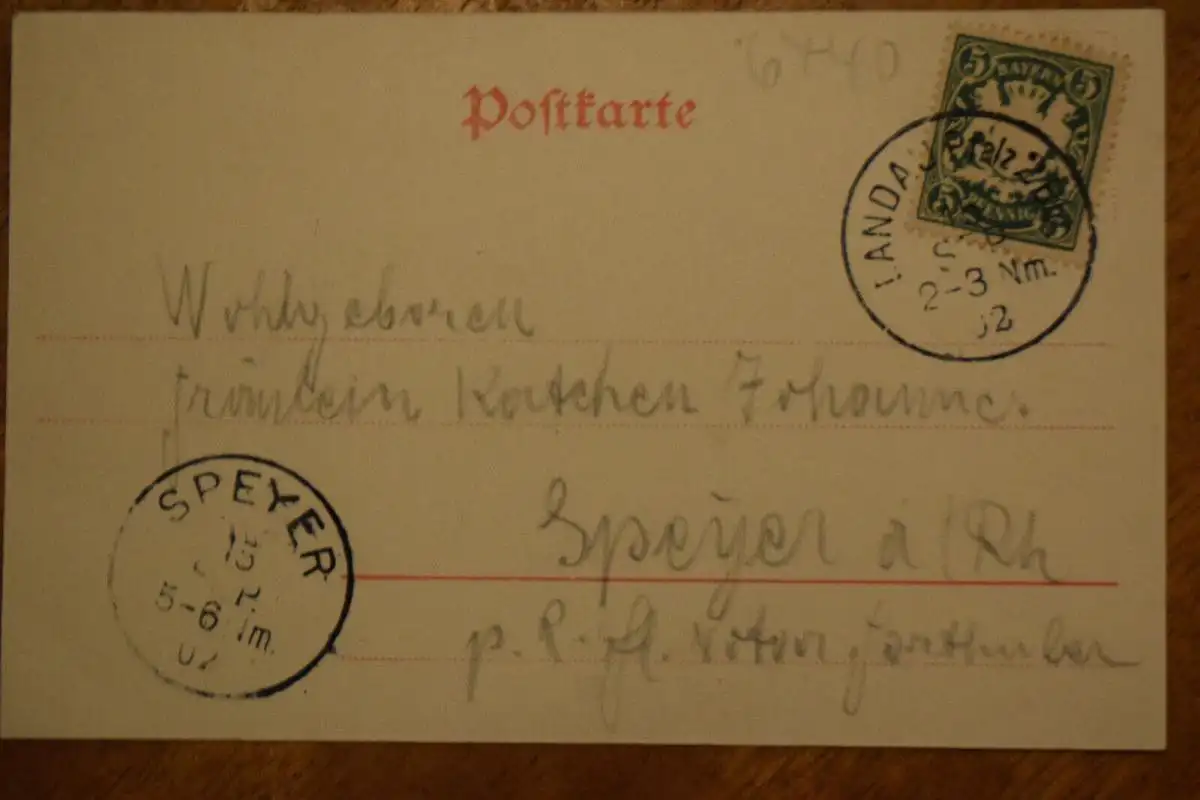 6740
Postkarte
5 BAYERN 5
5 PFENNIG 5
LANDAU Pfalz 2
2-3 Nm.
02
Wohlgeboren
Fräulein Kätchen Johannes
SPEYER
15
5-6 Nm.
02
Speyer a/Rh
p.